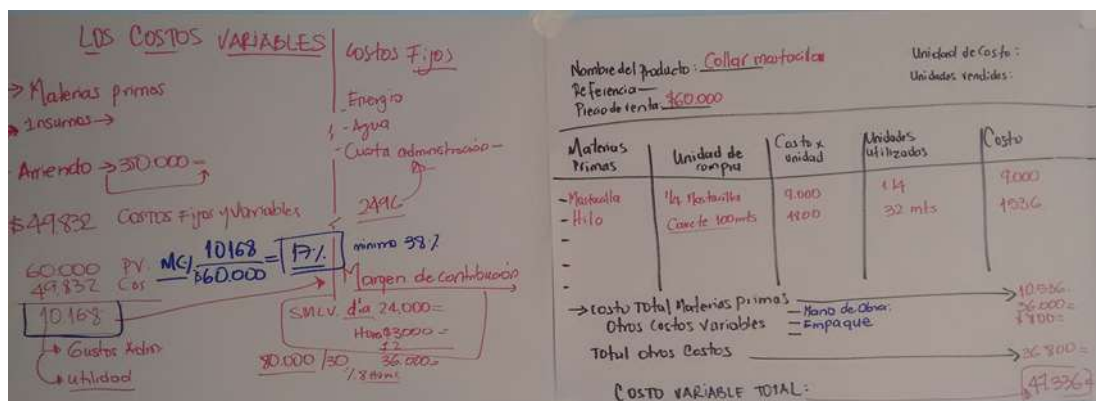 LOS COSTOS VARIABLES
→ Materias primas
→ Insumos →
Arriendo → 350.000 =
$49.832 Costos Fijos y Variables
60.000 PV.
49.832 Cos
10.168
→ Gastos Adm
→ utilidad
MC/ 10168 = 17%
$60.000
minimo 38%
Costos Fijos
- Energia
- Agua
- Cuota administración -
2496
Margen de contribución
SMLV. día 24.000=
Hora $3000 =
12
36.000=
80.000 /30
Nombre del Producto: Collar mostacilla
Referencia —
Precio de venta: $60.000
Unidad de Costo:
Unidades vendidas:
Materias Primas
Unidad de compra
Costo x unidad
Unidades utilizadas
Costo
- Mostacilla 9.000 9.000
- Hilo Conete 100mts 4800 32 mts 1536
-
-
-
→ Costo Total Materias Primas 10.536
Otros Costos Variables — Mano de Obra: 36.000=
— Empaque $800=
Total otros Costos → 36.800=
COSTO VARIABLE TOTAL: 47.336